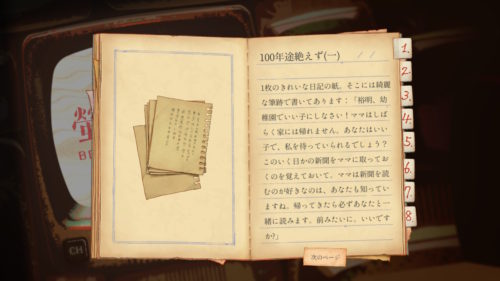 100年途絶えず(一)
1枚のきれいな日記の紙。そこには綺麗
な筆跡で書いてあります：「裕明、幼
稚園でいい子にしなさい！ママはしば
らく家には帰れません。あなたはいい
子で、私を待っていられるでしょう？
このいく日かの新聞をママに取ってお
くのを覚えておいて。ママは新聞を読
むのが好きなのは、あなたも知ってい
ますね。帰ってきたら必ずあなたと一
緒に読みます。前みたいに。いいです
か?」
次のページ
1.
2.
3.
4.
5.
6.
7.
8
CH